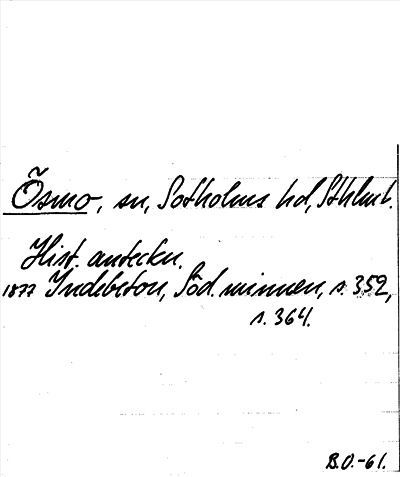 Ösmo, sn, Sotholms hd, Sthlms l.
Hist. anteckn.
1877 Indebetou, Söd. minnen, s. 352,
s. 364.
B.O.-61.